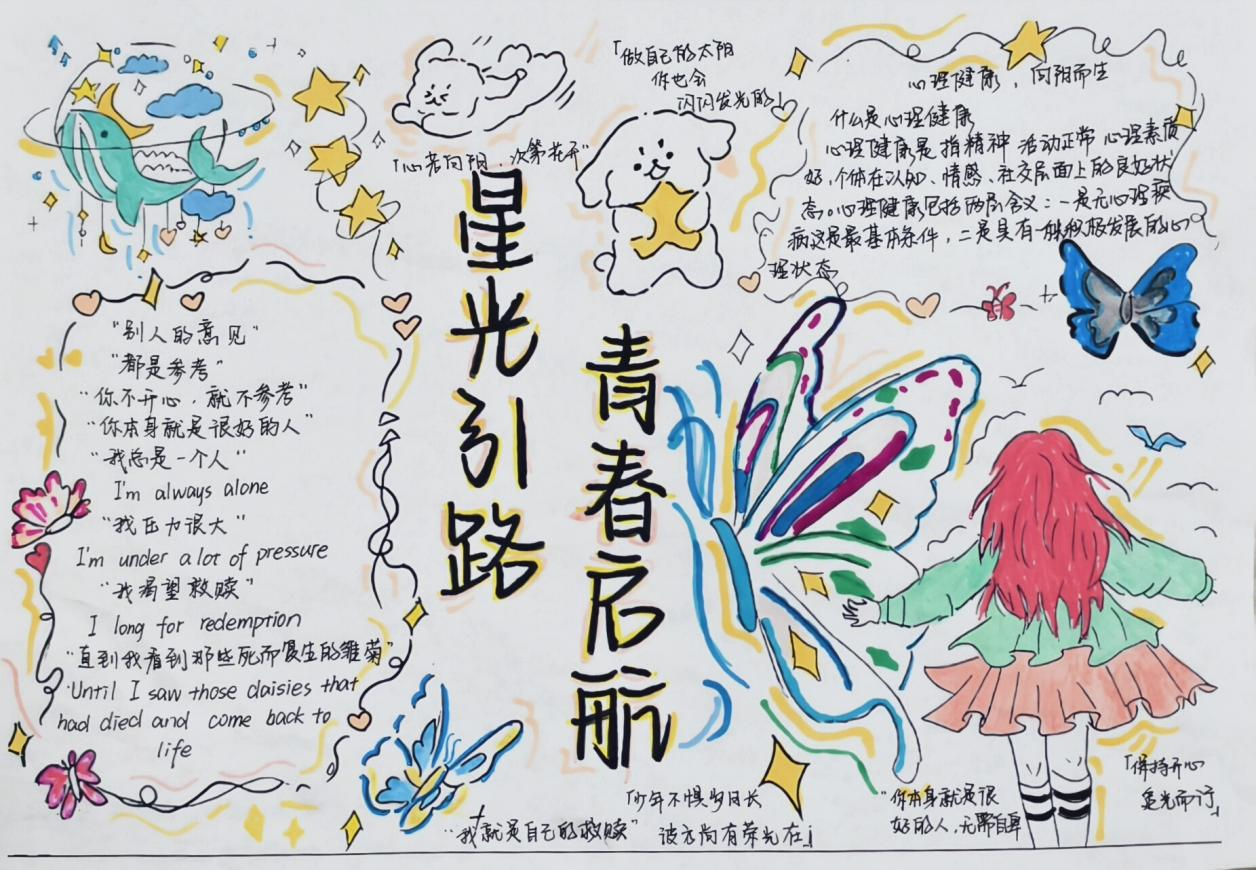 「做自己的太阳
你也会
闪闪发光的」
「心若向阳，次第花开"
星光引路
青春启航
心理健康，向阳而生
什么是心理健康
心理健康是指精神活动正常心理素质
好，个体在认知、情感、社交层面上的良好状
态。心理健康包括两层含义：一是无心理疾
病这是最基本条件，二是具有一种积极发展的心
理状态
"别人的意见"
"都是参考"
"你不开心，就不参考"
"你本身就是很好的人"
"我总是一个人"
I'm always alone
"我压力很大"
I'm under a lot of pressure
"我渴望救赎"
I long for redemption
"直到我看到那些死而复生的雏菊"
Until I saw those daisies that
had died and come back to
life
"我就是自己的救赎"
「少年不惧岁月长
彼方尚有荣光在」
"你本身就是很
好的人，无需自卑
「保持开心
追光而行」